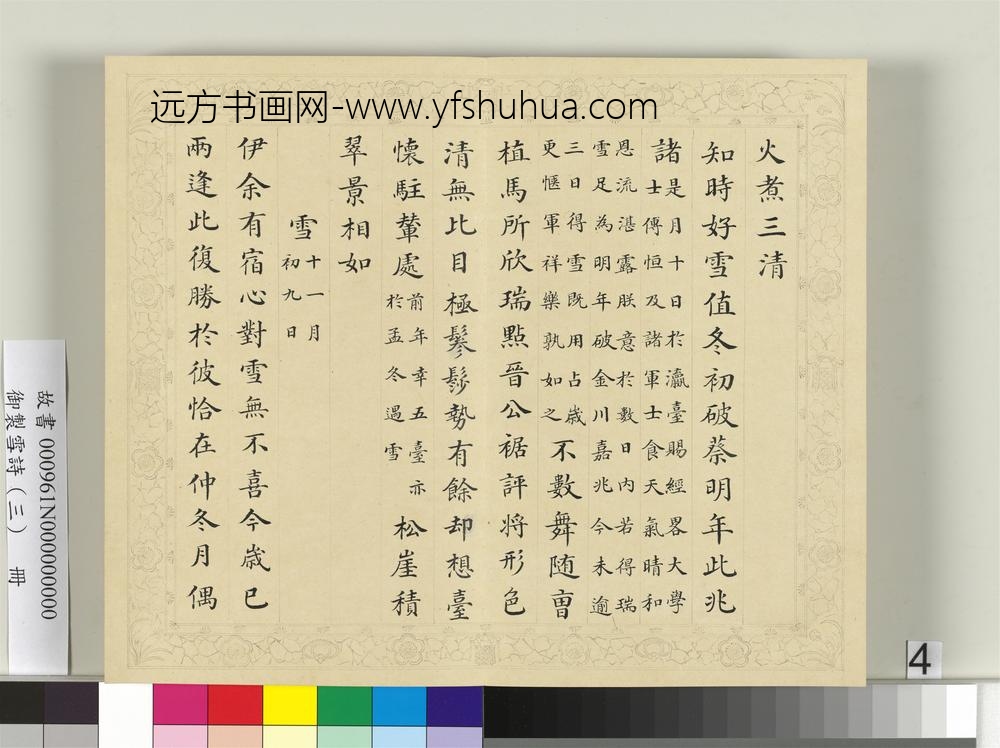 远方书画网-www.yfshuhua.com
火煮三清
知時好雪值冬初破蔡明年此兆
諸是月十日於瀛臺賜經畧大學
士傅恒及諸軍士食天氣晴和
恩流湛露朕意於數日內若得瑞
雪足為明年破金川嘉兆今未逾
三日得雪既用占歲
更愜軍祥樂孰如之不數舞随曺
植馬所欣瑞點晉公裾評將形色
清無比目極鬖髿勢有餘却想臺
懷駐輦處前年幸五臺亦
於孟冬遇雪松崖積
翠景相如
雪十一月
初九日
伊余有宿心對雪無不喜今歲已
兩逢此復勝於彼恰在仲冬月偶
故書 000961N000000000
御製雪詩(三) 冊
4